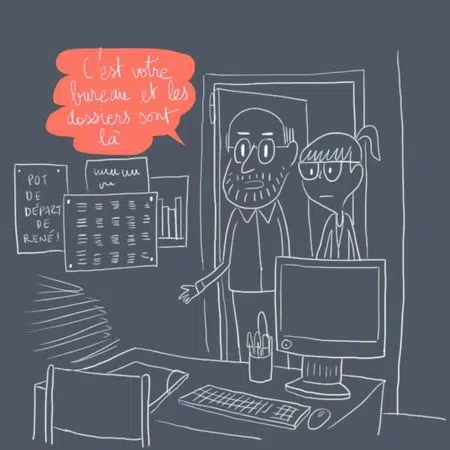 C'est votre
bureau et les
dossiers sont
là
POT
DE
DÉPART
DE
RENÉ!